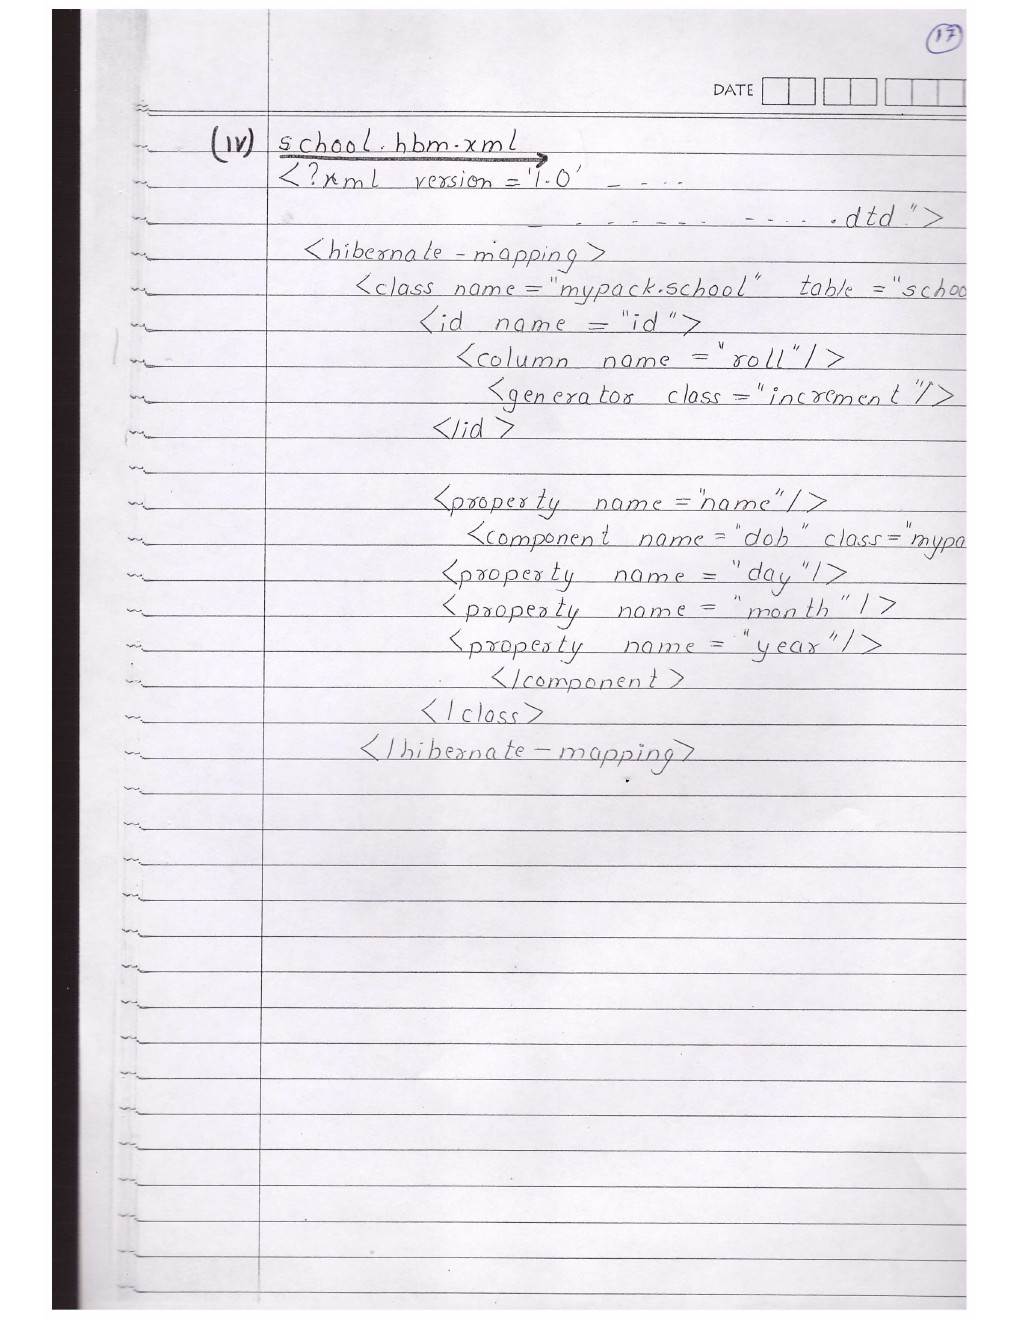 17
DATE
(iv) school.hbm.xml
<?xml version='1.0' - - - -
- - - - - - - - - - .dtd">
<hibernate-mapping>
<class name="mypack.school" table="schoo
<id name="id">
<column name="roll"/>
<generator class="increment"/>
</id>
<property name="name"/>
<component name="dob" class="mypa
<property name="day"/>
<property name="month"/>
<property name="year"/>
</component>
</class>
</hibernate-mapping>